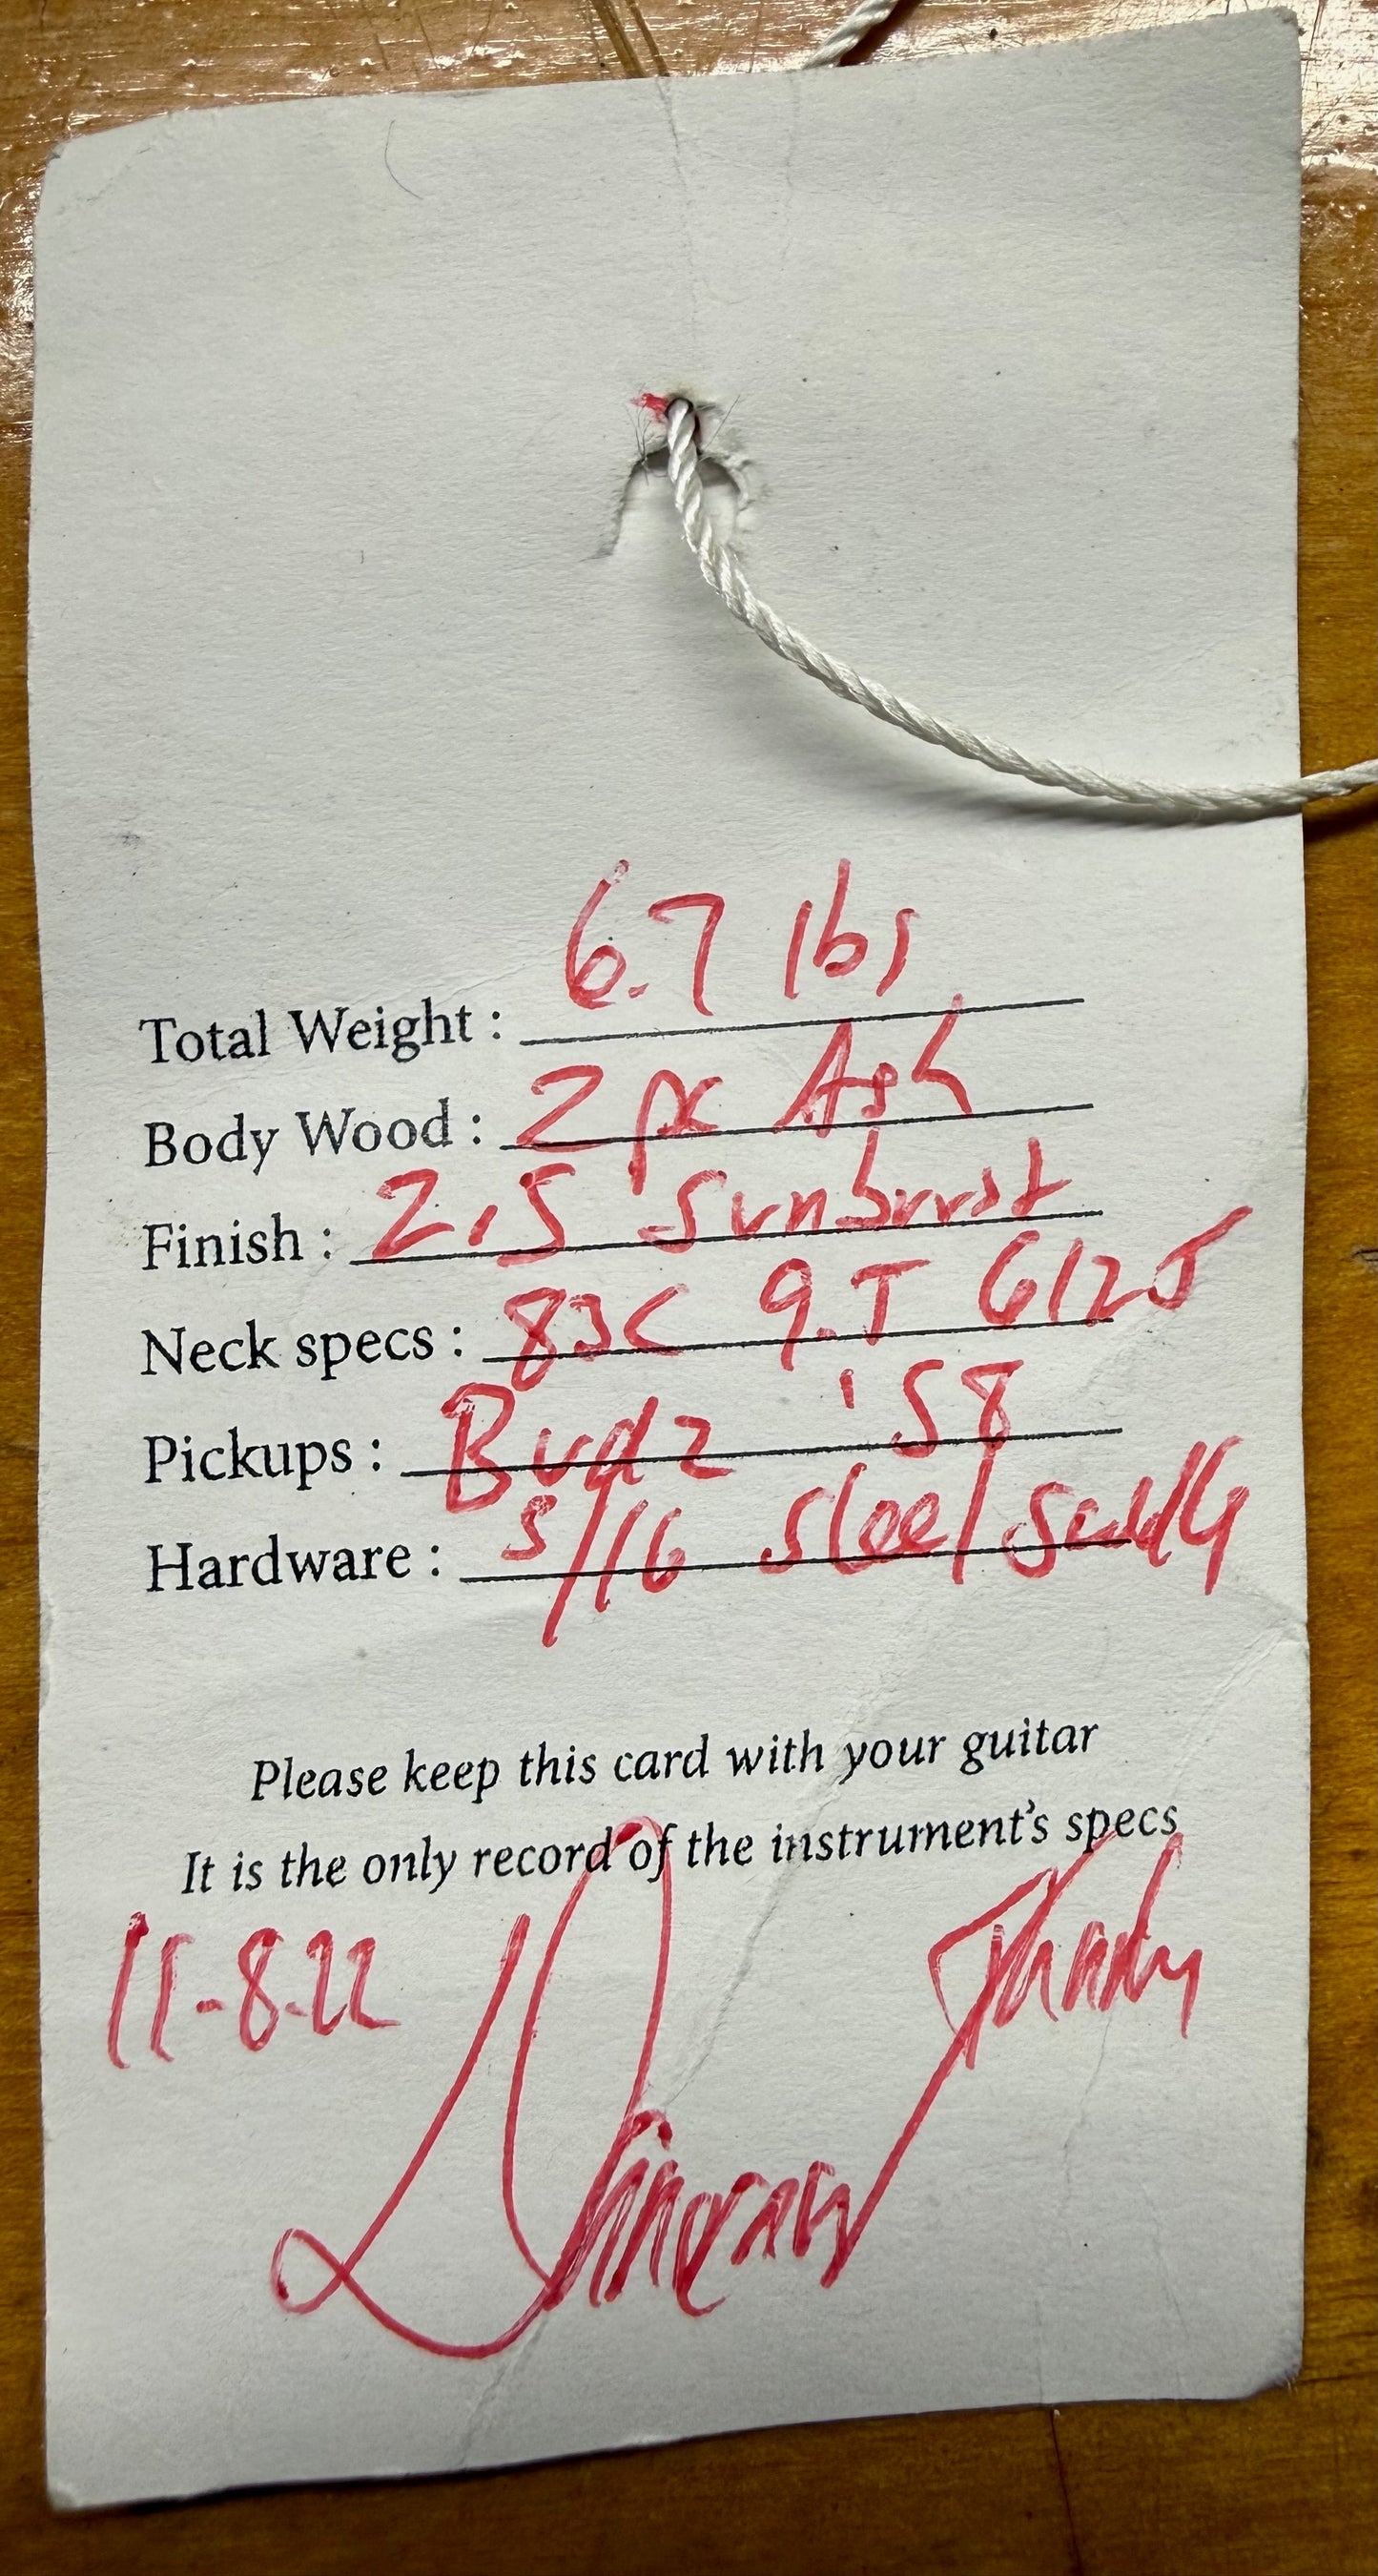 Total Weight : 6.7 lbs
Body Wood : 2 pc Ash
Finish : 2.5 Sunburst
Neck specs : 83C 9.5 6125
Pickups : Budz '58
Hardware : 5/16 steel
Please keep this card with your guitar
It is the only record of the instrument's specs
11-8-22